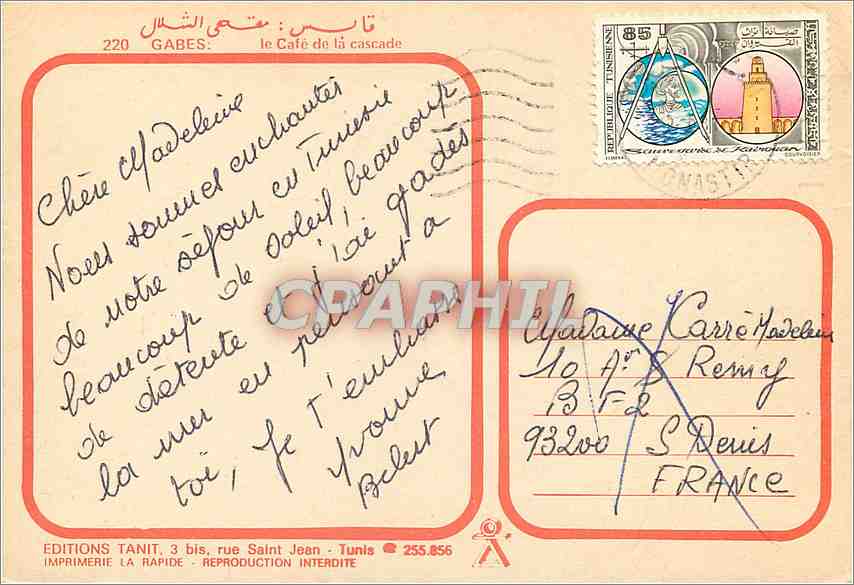 قابس : مقهى الشلال
220 GABES: le Café de la cascade
Chère Madeleine
Nous sommes enchantés
de notre séjour en Tunisie
beaucoup de soleil, beaucoup
de détente et j'ai gardés
la mer en pensant à
toi, Je t'embrasse
Yvonne
REPUBLIQUE TUNISIENNE
85
Sauvegarde de Kairouan
COURVOISIER
MONASTIR
CPARPHIL
Madame Carré Madelein
10 Aᵛᵉ S Remy
B F2
93200 S Denis
FRANCE
EDITIONS TANIT. 3 bis, rue Saint Jean - Tunis ☎ 255.856
IMPRIMERIE LA RAPIDE - REPRODUCTION INTERDITE